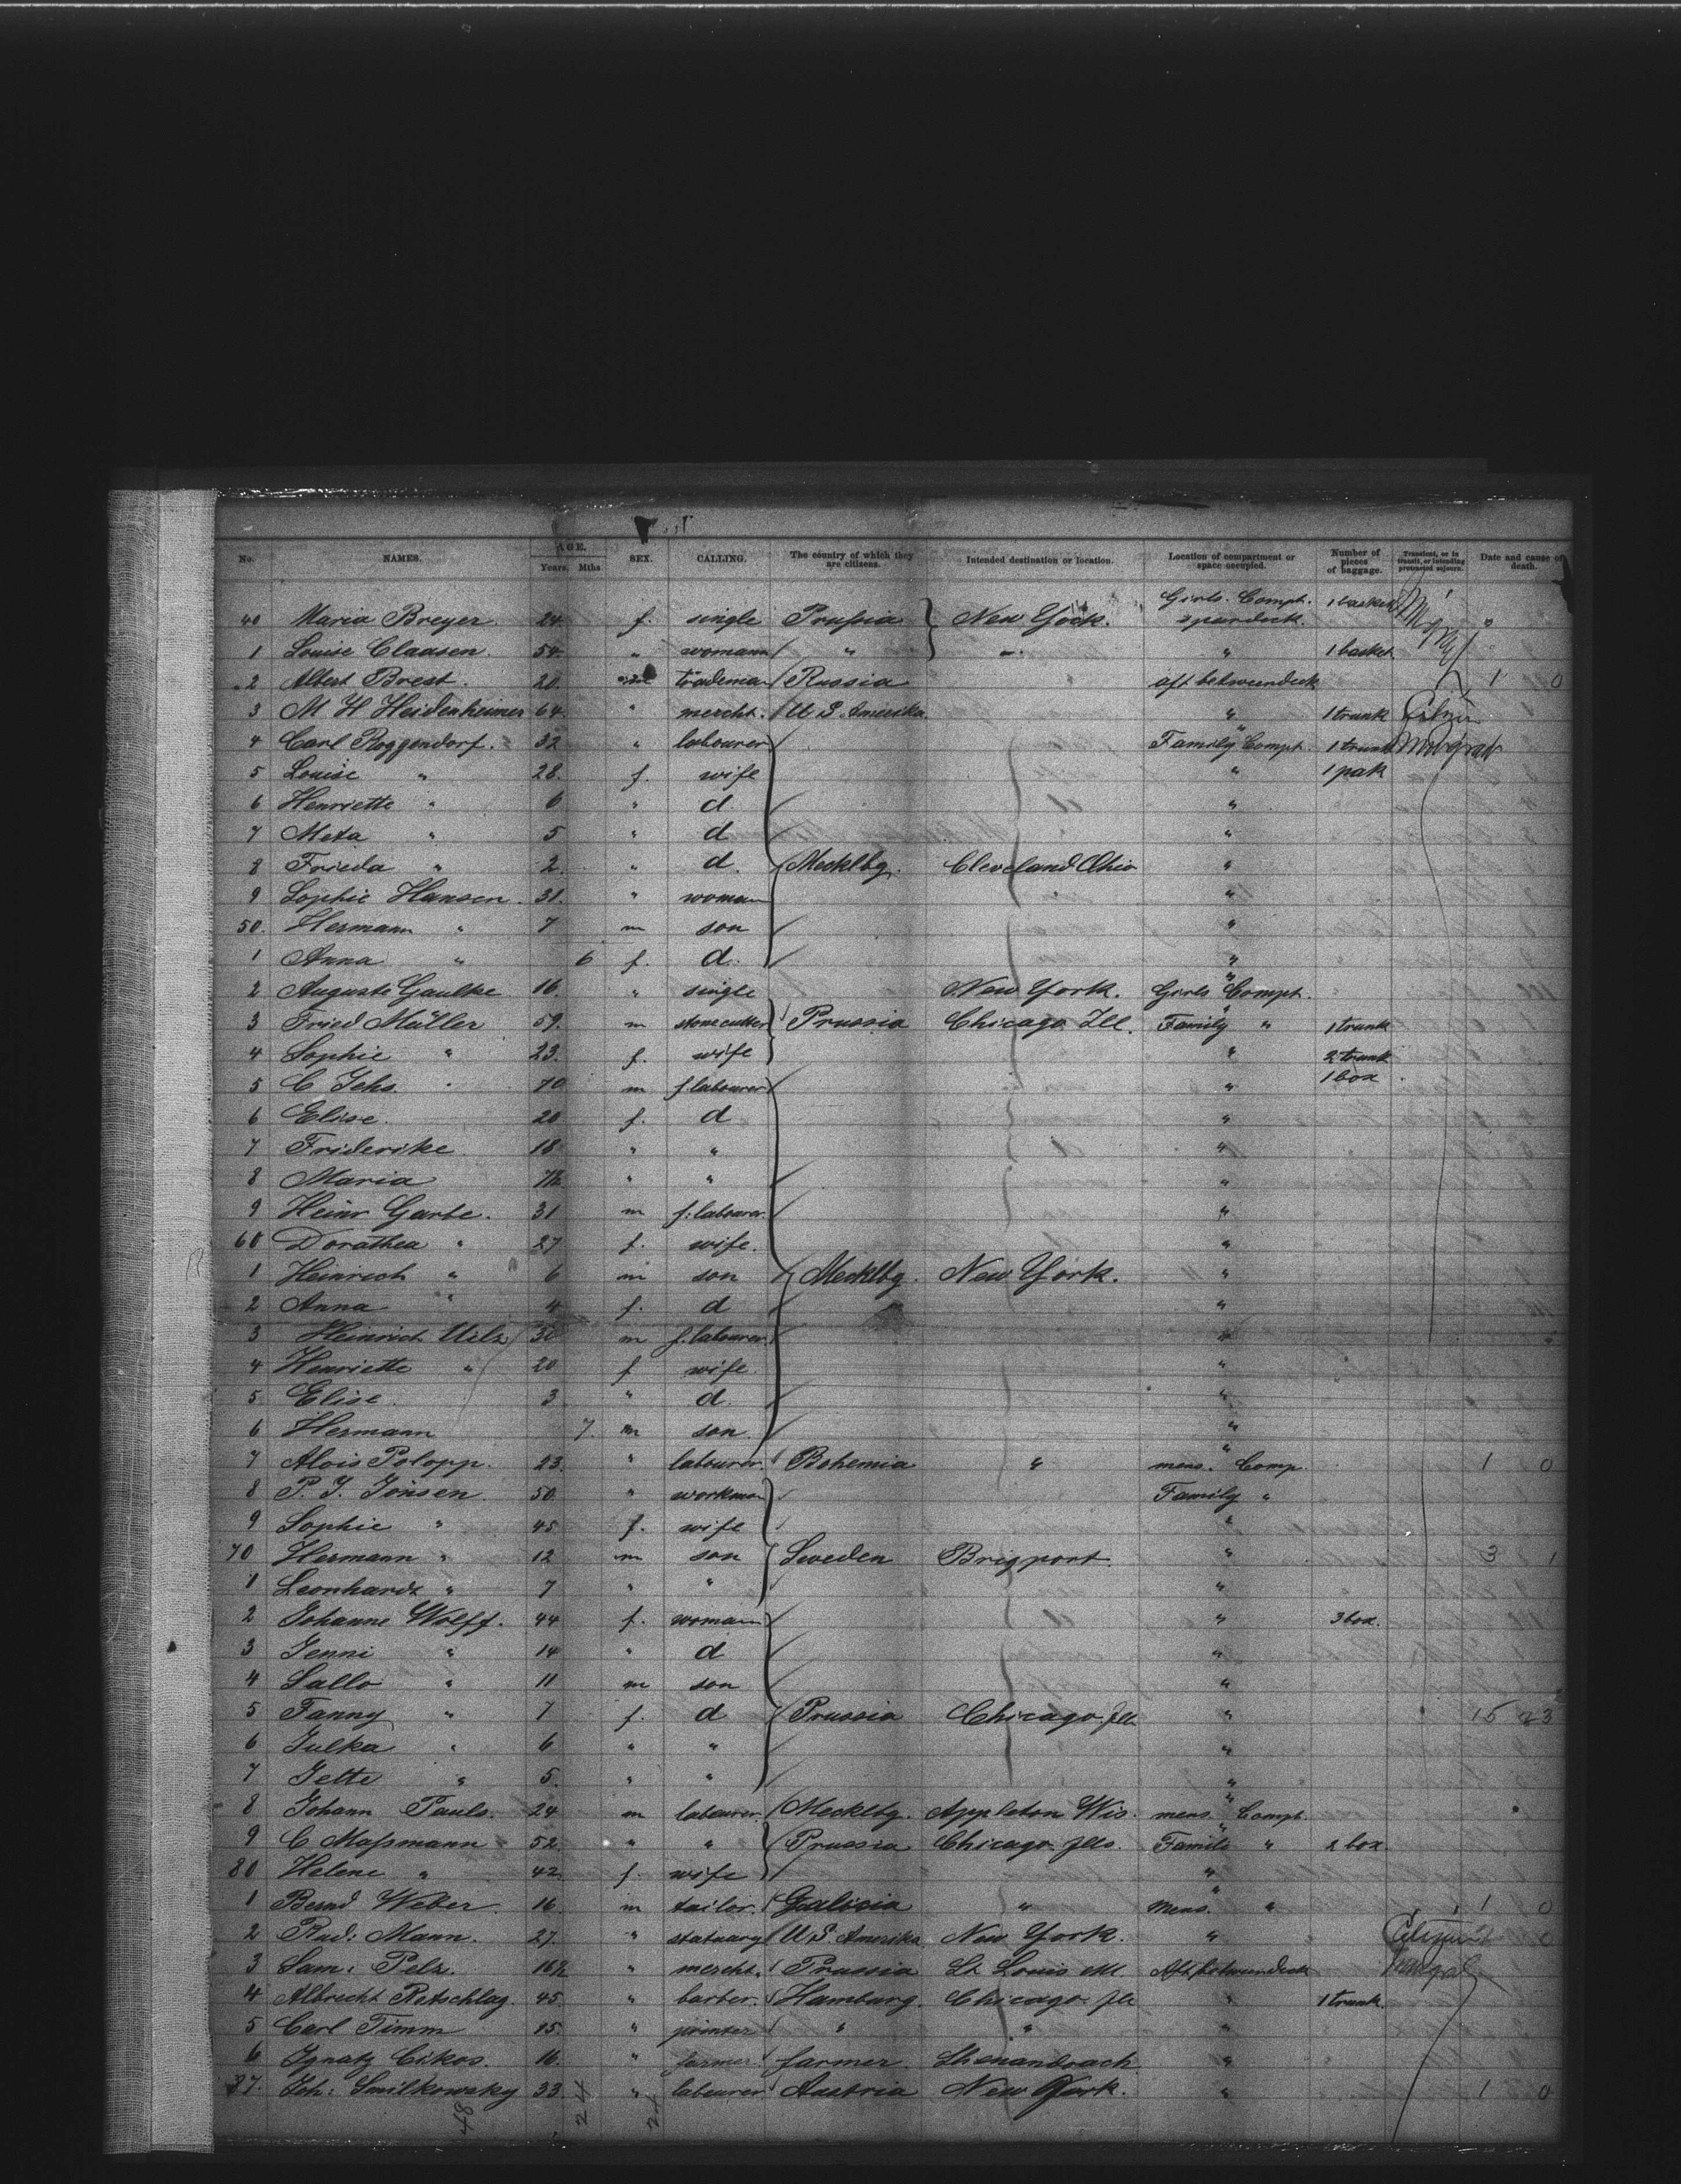 No. NAMES. AGE. Years. Mths SEX. CALLING. The country of which they are citizens. Intended destination or location. Location of compartment or space occupied. Number of pieces of baggage. Transient, or in transit, or intending protracted sojourn. Date and cause of death.
40 Maria Breyer. 24. f. single Prussia New York. Girls. Compt. spardeck. 1 basket
1 Louise Claasen. 54. " womann " " " 1 basket.
2 Albert Brest. 20. m trademan Russia aft betweendeck 1 0
3 M H Heidenheimer 64. " mercht. U S. Amerika. " 1 trunk
4 Carl Roggendorf. 32 " labourer Family Compt. 1 trunk
5 Louise " 28. f. wife " 1 pak
6 Henriette " 6 " d "
7 Meta " 5 " d "
8 Frieda " 2. " d. Mecklbg. Cleveland Ohio "
9 Sophie Hansen. 31. " woman "
50. Hermann " 7 m son "
1 Anna " 6 f. d. "
2 Auguste Gaulke 16. " single New York. Girls Compt.
3 Fried Müller 59. m stonecutter Prussia Chicago Ill. Family " 1 trunk
4 Sophie " 23. f. wife " 2 trunk
5 C Jehs. 70 m f. labourer " 1 box
6 Elise. 20 f. d "
7 Friderike 18 " " "
8 Maria " " "
9 Heinr Garbe. 31 m f. labourer. "
60 Dorathea " 27 f. wife. "
1 Heinrich " 6 m son Mecklbg. New York. "
2 Anna " 4 f. d "
3 Heinrich Uilz 30 m f. labourer. "
4 Henriette " 20 f wife. "
5 Elise 3 " d. "
6 Hermann 7. m son. "
7 Alois Polopp. 23. " labourer. Bohemia " mens. Comp. 1 0
8 P. J. Jönsen. 50. " workman Family "
9 Sophie " 45 f. wife "
70 Hermann " 12 m son Sweden Brigport " 3 1
1 Leonhard " 7 " " "
2 Johanne Wolff. 44 f. womann " 3 box.
3 Jenni " 14 " d "
4 Sallo " 11 m son "
5 Fanny " 7 f. d Prussia Chicago Ill. " 15 23
6 Julka " 6 " " "
7 Jette " 5. " " "
8 Johann Pauls. 24 m labourer. Mecklbg. Appleton Wis. mens. Compt.
9 C Maßmann 52. " " Prussia Chicago Ills. Famile " 2 box.
80 Helene " 42 f. wife "
1 Bernd Weber. 16. m tailor. Galisia " mens. " 1 0
2 Rud: Mann. 27. " statuary U S. Amerika. New York. "
3 Sam: Pelz. 16½ " mercht. Prussia St Louis M. Aft betweendeck
4 Albrecht Retschlag. 45. " barber. Hamburg. Chicago Ill " 1 trunk.
5 Carl Timm 15. " printer " " "
6 Ignatz Cikos. 16. " farmer. farmer Shenandoach "
87. Joh: Smilkowsky 33. " labourer Austria New York. " 1 0
48 24 24